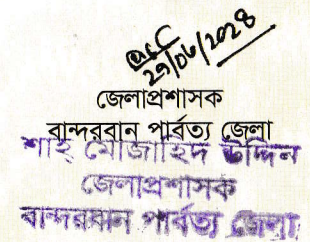 ২৯/০৮/২০২৪
জেলাপ্রশাসক
বান্দরবান পার্বত্য জেলা
শাহ্ মোজাহিদ উদ্দিন
জেলাপ্রশাসক
বান্দরবান পার্বত্য জেলা